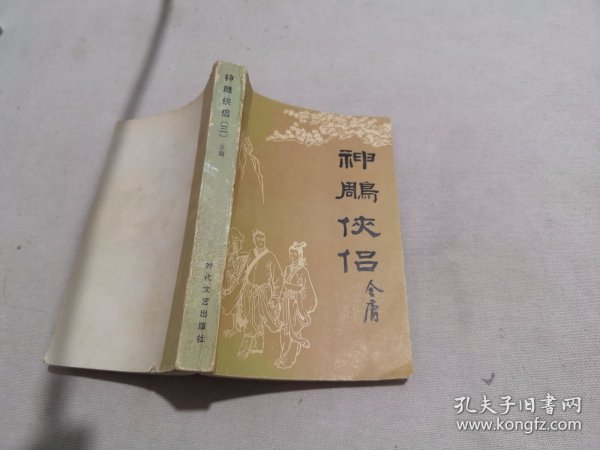 神鵰俠侣
金庸
神鵰俠侣(三) 金庸
时代文艺出版社
孔夫子旧书网
www.kongfz.com